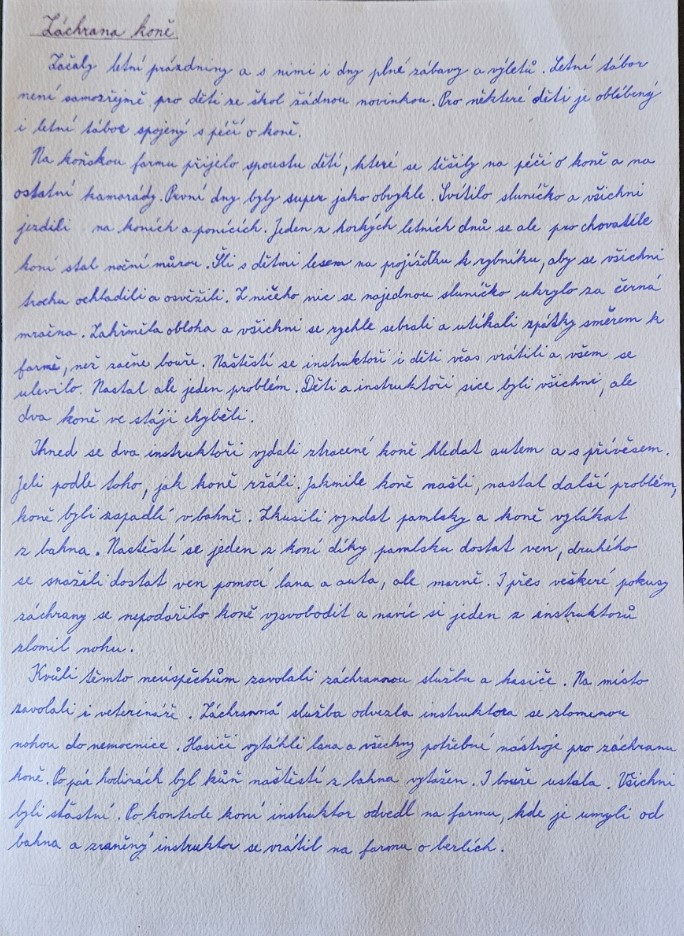 Záchrana koně
Začaly letní prázdniny a s nimi i dny plné zábavy a výletů. Letní tábor
není samozřejmě pro děti ze škol žádnou novinkou. Pro některé děti je oblíbený
i letní tábor spojený s péčí o koně.
Na koňskou farmu přijelo spoustu dětí, které se těšily na péči o koně a na
ostatní kamarády. První dny byly super jako obvykle. Svítilo sluníčko a všichni
jezdili na koních a ponících. Jeden z horkých letních dnů se ale pro chovatele
koní stal noční můrou. Šli s dětmi lesem na projížďku k rybníku, aby se všichni
trochu ochladili a osvěžili. Z ničeho nic se najednou sluníčko ukrylo za černá
mračna. Zahřměla obloha a všichni se rychle sebrali a utíkali zpátky směrem k
farmě, než začne bouře. Naštěstí se instruktoři i děti včas vrátili a všem se
ulevilo. Nastal ale jeden problém. Děti a instruktoři sice byli všichni, ale
dva koně ve stáji chyběli.
Ihned se dva instruktoři vydali ztracené koně hledat autem a s přívěsem.
Jeli podle toho, jak koně ržáli. Jakmile koně našli, nastal další problém,
koně byli zapadlí v bahně. Zkusili vyndat pamlsky a koně vylákat
z bahna. Nastěstí se jeden z koní díky pamlsku dostat ven, druhého
se snažili dostat ven pomocí lana a auta, ale marně. I přes veškeré pokusy
záchrany se nepodařilo koně vysvobodit a navíc si jeden z instruktorů
zlomil nohu.
Kvůli těmto neúspěchům zavolali záchrannou službu a hasiče. Na místo
zavolali i veterináře. Záchranná služba odvezla instruktora se zlomenou
nohou do nemocnice. Hasiči vytáhli lana a všechny potřebné nástroje pro záchranu
koně. Po pár hodinách byl kůň naštěstí z bahna vytažen. I bouře ustala. Všichni
byli šťastní. Po kontrole koní instruktor odvedl na farmu, kde je umyli od
bahna a zraněný instruktor se vrátil na farmu o berlích.